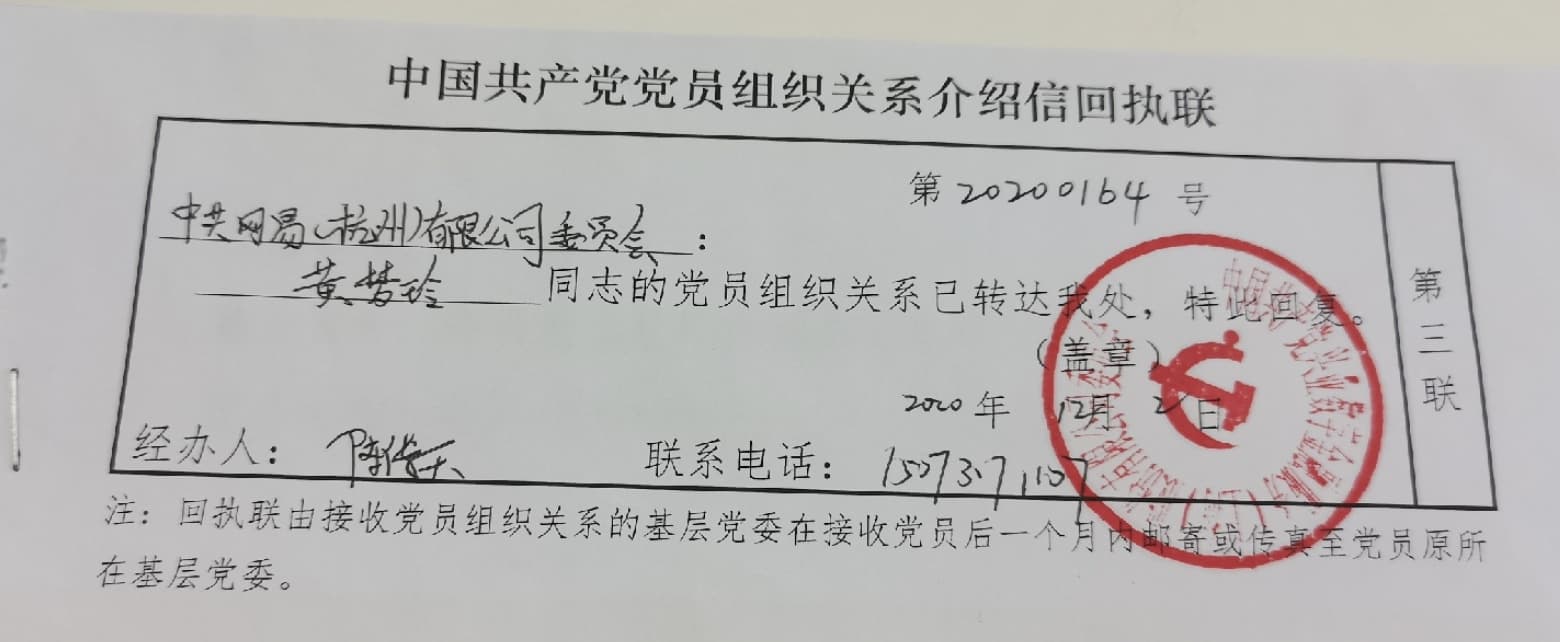 中国共产党党员组织关系介绍信回执联
第 20200164 号
中共网易(杭州)有限公司委员会：
黄梦玲 同志的党员组织关系已转达我处，特此回复。
（盖章）
2020 年 12月 2 日
经办人： 联系电话：
第三联
注：回执联由接收党员组织关系的基层党委在接收党员后一个月内邮寄或传真至党员原所
在基层党委。